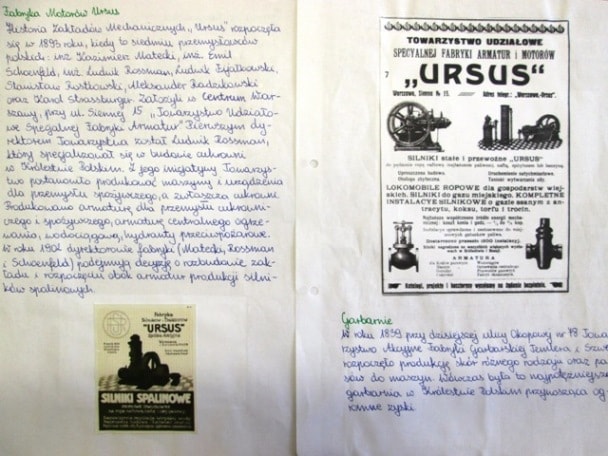 Fabryka Motorów Ursus
Historia Zakładów Mechanicznych „Ursus" rozpoczęła
się w 1893 roku, kiedy to siedmiu przemysłowców
polskich: inż. Kazimierz Matecki, inż. Emil
Schoenfeld, inż. Ludwik Rossman, Ludwik Fijałkowski,
Stanisław Rostkowski, Aleksander Radzikowski
oraz Karol Strassburger. Założyli w Centrum War-
szawy, przy ul. Siennej 15 „Towarzystwo Udziałowe
Specjalnej Fabryki Armatur" Pierwszym dy-
rektorem Towarzystwa został Ludwik Rossman,
który specjalizował się w budowie cukrowni
w Królestwie Polskim. Z jego inicjatywy Towarzys-
two postanowiło produkować maszyny i urządzenia
dla przemysłu spożywczego, a zwłaszcza cukrowni.
Produkowano armaturę dla przemysłu cukrowni-
czego i spożywczego, armaturę centralnego ogrze-
wania, wodociągową, hydranty przeciwpożarowe.
W roku 1902 dyrektorowie fabryki (Matecki, Rossman
i Schoenfeld) podejmują decyzję o rozbudowie zak-
ładu i rozpoczęciu obok armatur produkcji silni-
ków spalinowych.
Fabryka
Silników i Traktorów
"URSUS"
Spółka Akcyjna
SILNIKI SPALINOWE
TOWARZYSTWO UDZIAŁOWE
SPECYALNEJ FABRYKI ARMATUR i MOTORÓW
„URSUS"
Warszawa, Sienna № 15. Adres telegr.: „Warszawa-Ursus".
SILNIKI stałe i przewoźne „URSUS"
LOKOMOBILE ROPOWE dla gospodarstw wiej-
skich, SILNIKI do gazu miejskiego, KOMPLETNE
INSTALACYE SILNIKOWE o gazie ssanym z an-
tracytu, koksu, torfu i trocin.
ARMATURA
Katalogi, projekty i kosztorysy wysyłamy na żądanie bezpłatnie.
Garbarnie
W roku 1899 przy dzisiejszej ulicy Okopowej nr 78 Towa-
rzystwo Akcyjne Fabryka Garbarskiej Temlera i Szwe
rozpoczęło produkcję skór różnego rodzaju oraz pa-
sów do maszyn. Wówczas była to największa
garbarnia w Królestwie Polskim przynosząca og-
romne zyski.